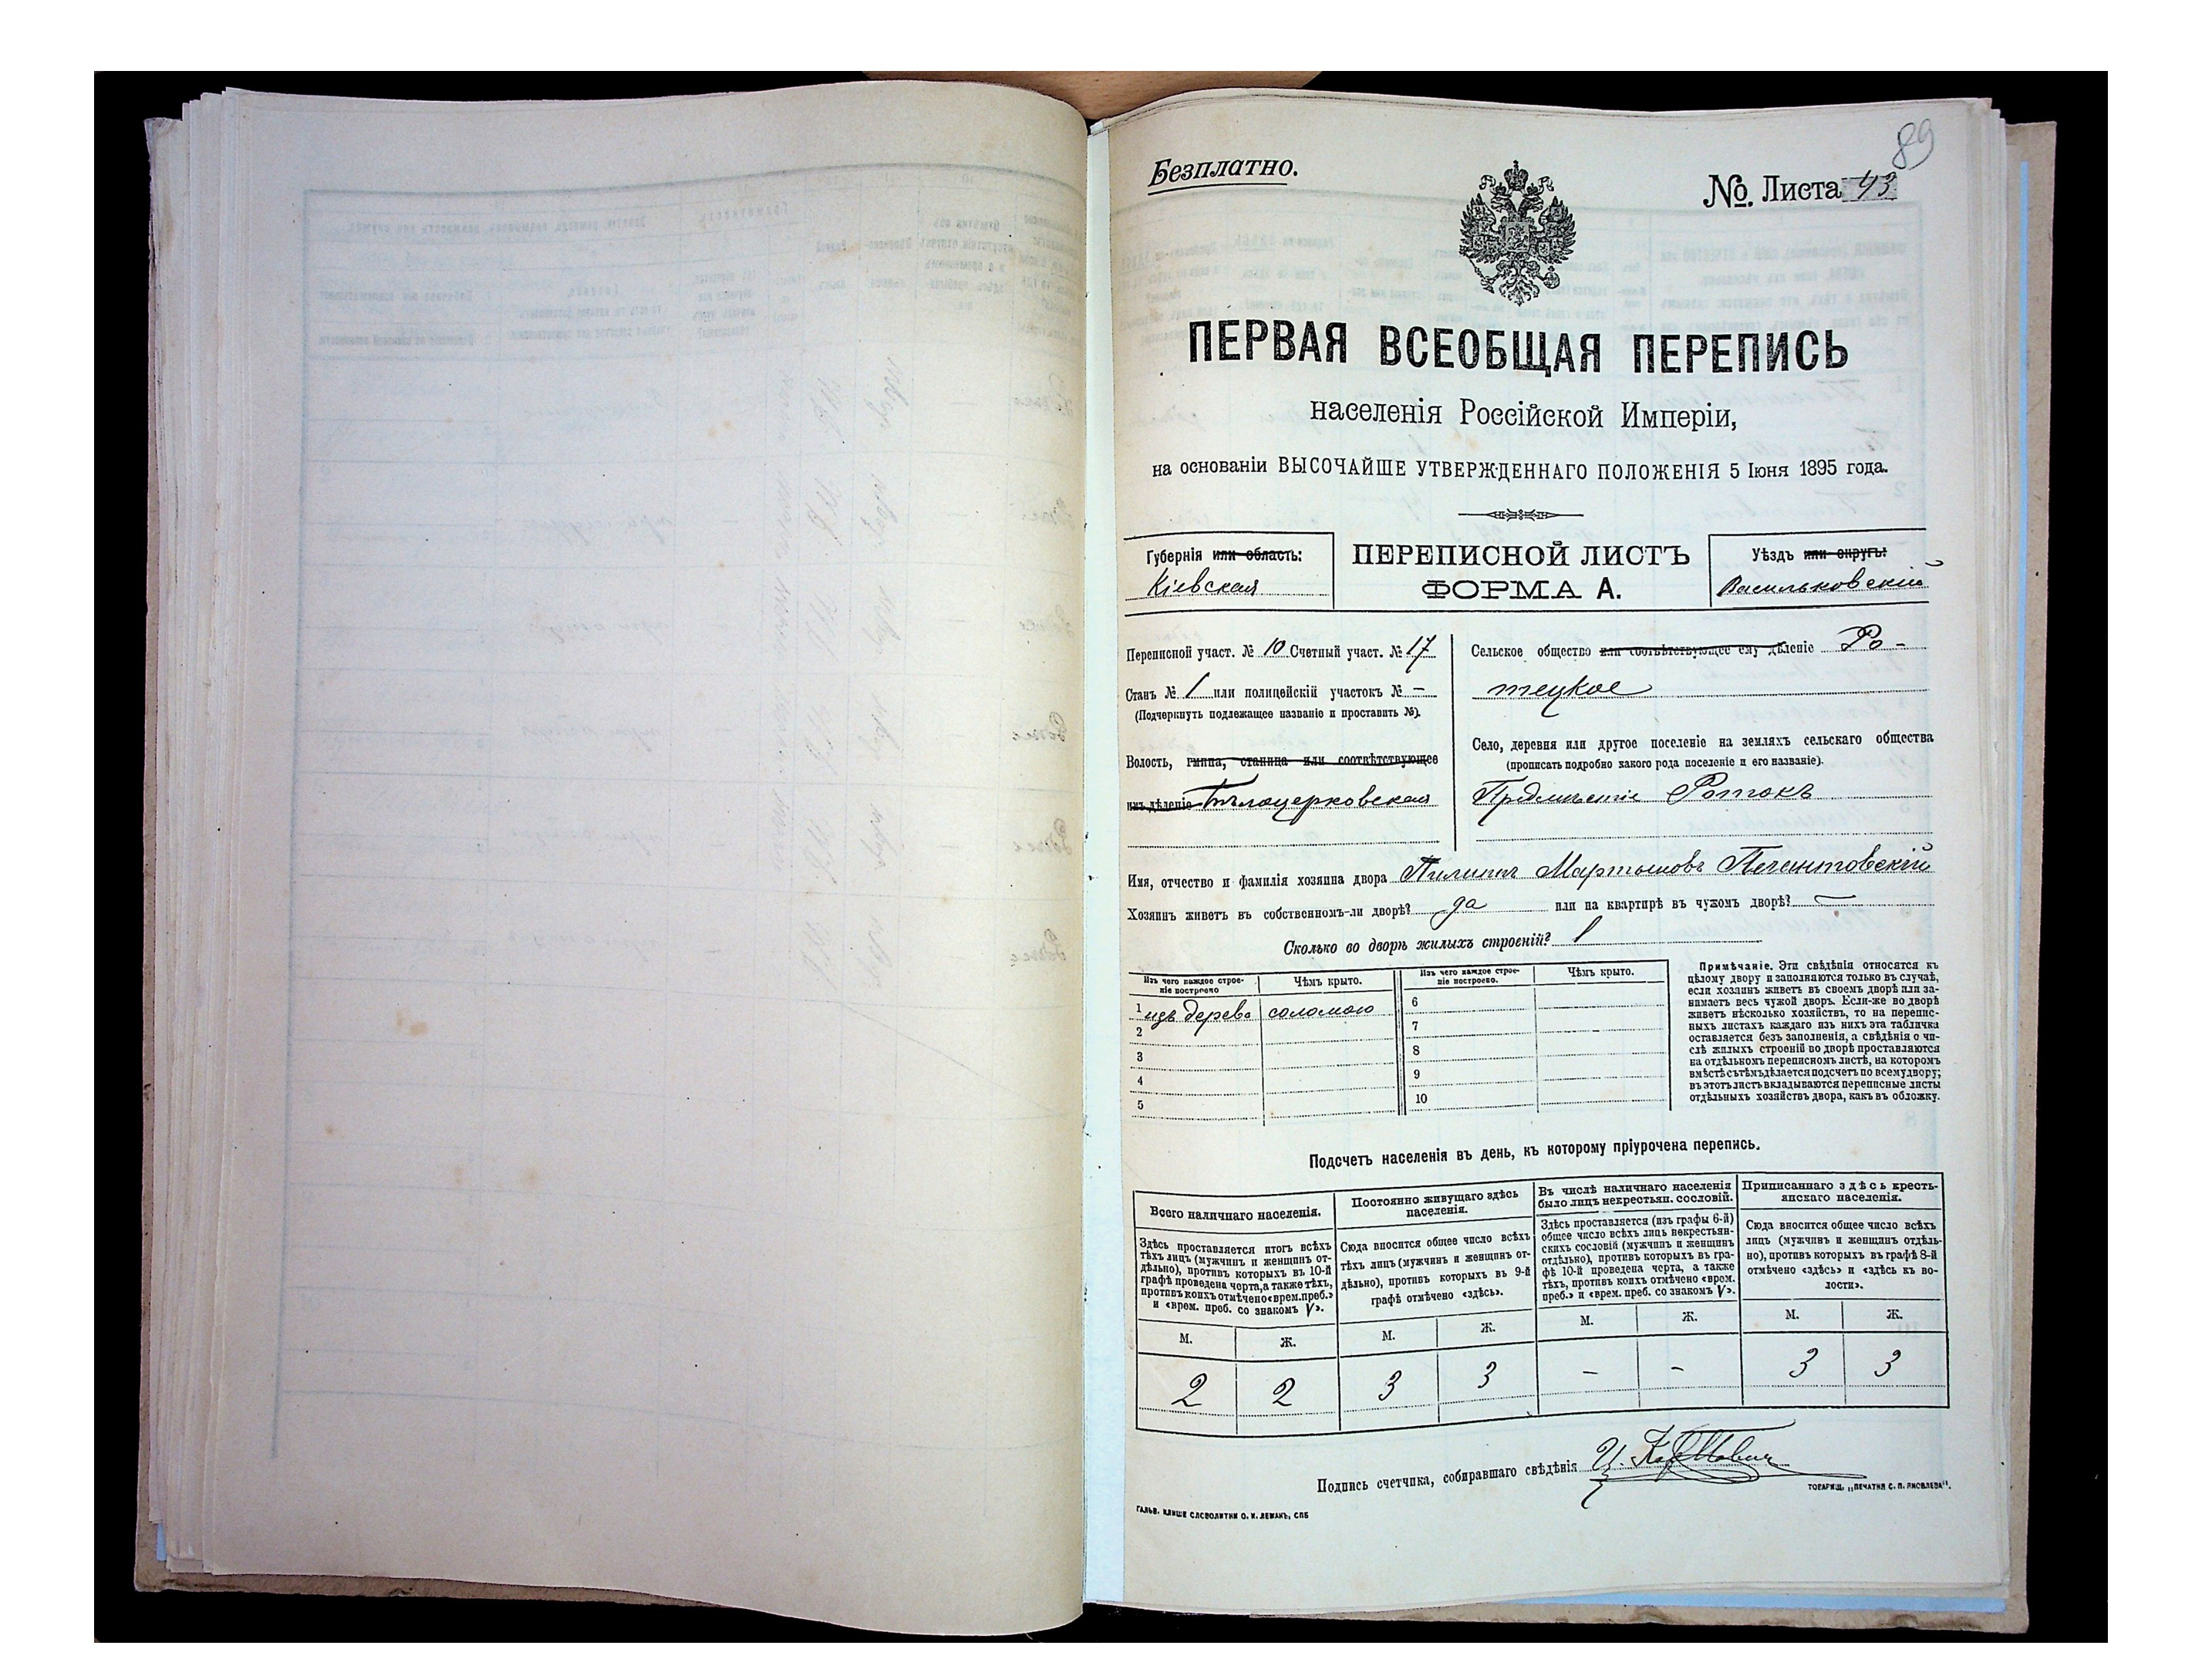 89
Безплатно.
№. Листа 43
ПЕРВАЯ ВСЕОБЩАЯ ПЕРЕПИСЬ
населенія Россійской Имперіи,
на основаніи ВЫСОЧАЙШЕ УТВЕРЖДЕННАГО ПОЛОЖЕНІЯ 5 Іюня 1895 года.
Губернія или область:
Кіевская
ПЕРЕПИСНОЙ ЛИСТЪ
ФОРМА А.
Уѣздъ или округъ:
Васильковскій
Переписной участ. № 10 Счетный участ. № 17
Станъ № 1 или полицейскій участокъ № —
(Подчеркнуть подлежащее названіе и проставить №).
Волость, гмина, станица или соотвѣтствующее
имъ дѣленіе Бѣлоцерковская
Сельское общество или соотвѣтствующее ему дѣленіе Ро-
тецкое
Село, деревня или другое поселеніе на земляхъ сельскаго общества
(прописать подробно какого рода поселеніе и его названіе).
Предмѣстіе Ротокъ
Имя, отчество и фамилія хозяина двора Пилипъ Мартыновъ
Хозяинъ живетъ въ собственномъ-ли дворѣ? да или на квартирѣ въ чужомъ дворѣ? —
Сколько во дворѣ жилыхъ строеній? 1
Изъ чего каждое строе-
ніе построено
Чѣмъ крыто.
Изъ чего каждое строе-
ніе построено.
Чѣмъ крыто.
1 изъ дерева соломою
2
3
4
5
6
7
8
9
10
Примѣчаніе. Эти свѣдѣнія относятся къ
цѣлому двору и заполняются только въ случаѣ,
если хозяинъ живетъ въ своемъ дворѣ или за-
нимаетъ весь чужой дворъ. Если-же во дворѣ
живетъ нѣсколько хозяйствъ, то на перепис-
ныхъ листахъ каждаго изъ нихъ эта табличка
оставляется безъ заполненія, а свѣдѣнія о чи-
слѣ жилыхъ строеній во дворѣ проставляются
на отдѣльномъ переписномъ листѣ, на которомъ
вмѣстѣ съ тѣмъ дѣлается подсчетъ по всему двору;
въ этотъ листъ вкладываются переписные листы
отдѣльныхъ хозяйствъ двора, какъ въ обложку.
Подсчетъ населенія въ день, къ которому пріурочена перепись.
Всего наличнаго населенія.
Здѣсь проставляется итогъ всѣхъ
тѣхъ лицъ (мужчинъ и женщинъ от-
дѣльно), противъ которыхъ въ 10-й
графѣ проведена черта, а также тѣхъ,
противъ коихъ отмѣчено «врем. преб.»
и «врем. преб. со знакомъ V».
М.
Ж.
2
2
Постоянно живущаго здѣсь
населенія.
Сюда вносится общее число всѣхъ
тѣхъ лицъ (мужчинъ и женщинъ от-
дѣльно), противъ которыхъ въ 9-й
графѣ отмѣчено «здѣсь».
М.
Ж.
3
3
Въ числѣ наличнаго населенія
было лицъ некрестьян. сословій.
Здѣсь проставляется (изъ графы 6-й)
общее число всѣхъ лицъ некрестьян-
скихъ сословій (мужчинъ и женщинъ
отдѣльно), противъ которыхъ въ гра-
фѣ 10-й проведена черта, а также
тѣхъ, противъ коихъ отмѣчено «врем.
преб.» и «врем. преб. со знакомъ V».
М.
Ж.
-
-
Приписаннаго здѣсь кресть-
янскаго населенія.
Сюда вносится общее число всѣхъ
лицъ (мужчинъ и женщинъ отдѣль-
но), противъ которыхъ въ графѣ 8-й
отмѣчено «здѣсь» и «здѣсь къ во-
лости».
М.
Ж.
3
3
Подпись счетчика, собиравшаго свѣдѣнія
ГАЛЬВ. КЛИШЕ СЛОВОЛИТНИ О. И. ЛЕМАНЪ, СПБ
ТОВАРИЩ. „ПЕЧАТНЯ С. П. ЯКОВЛЕВА".